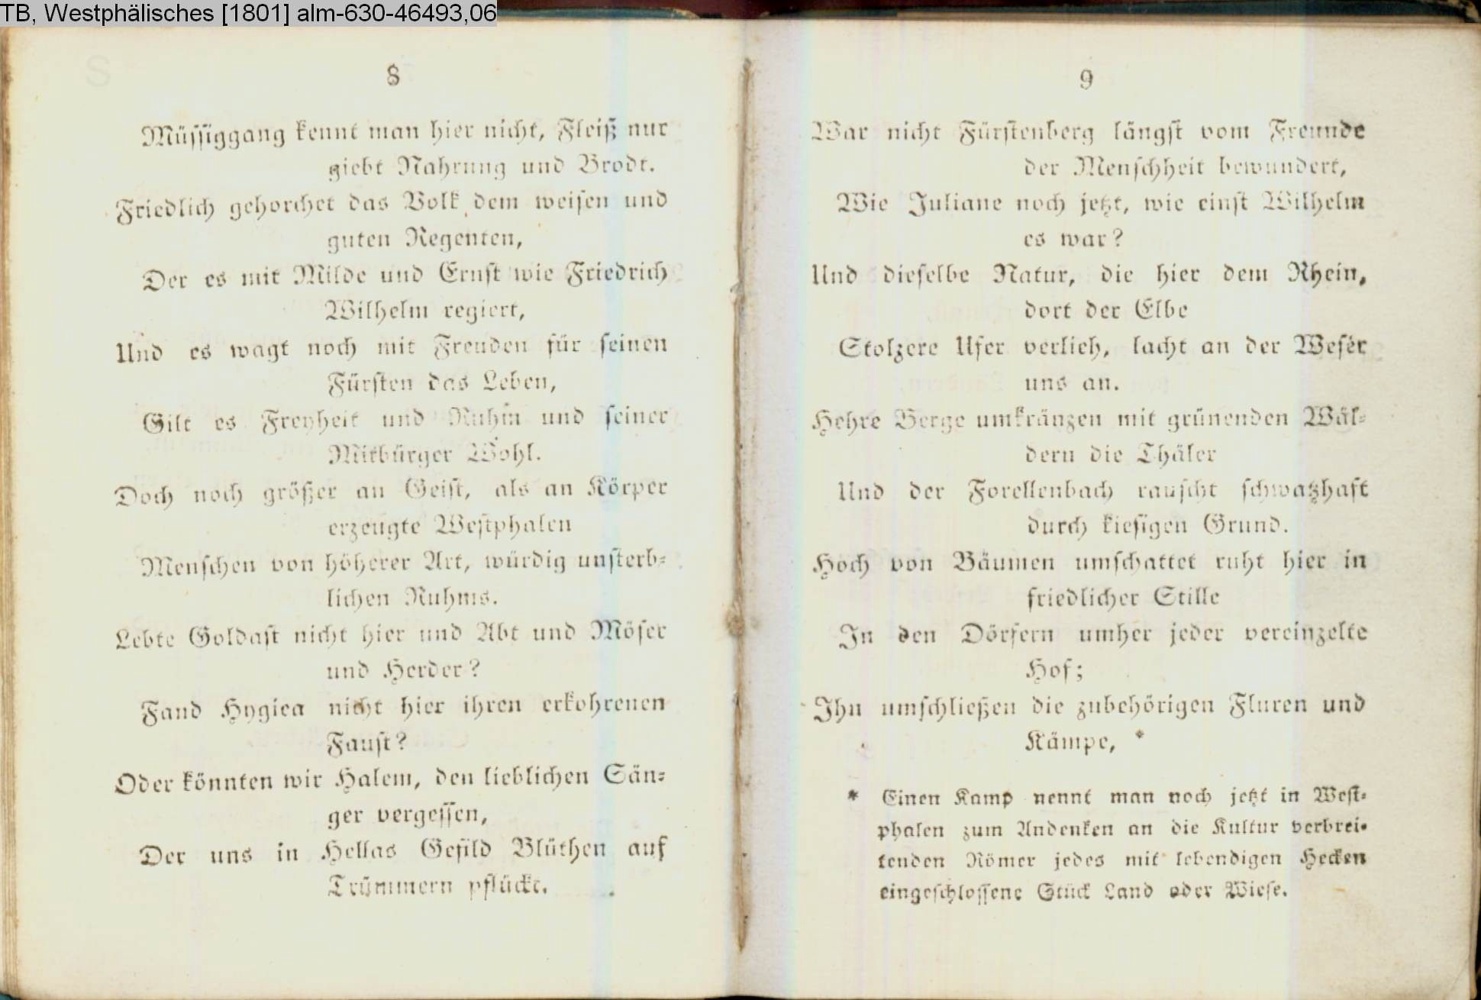 TB, Westphälisches [1801] alm-630-46493,06
8
Müssiggang kennt man hier nicht, Fleiß nur
giebt Nahrung und Brodt.
Friedlich gehorchet das Volk dem weisen und
guten Regenten,
Der es mit Milde und Ernst wie Friedrich
Wilhelm regiert,
Und es wagt noch mit Freuden für seinen
Fürsten das Leben,
Gilt es Freyheit und Ruhm und seiner
Mitbürger Wohl.
Doch noch größer an Geist, als an Körper
erzeugte Westphalen
Menschen von höherer Art, würdig unsterb-
lichen Ruhms.
Lebte Goldast nicht hier und Abt und Möser
und Herder?
Fand Hygiea nicht hier ihren erkohrenen
Faust?
Oder könnten wir Halem, den lieblichen Sän-
ger vergessen,
Der uns in Hellas Gefild Blüthen auf
Trümmern pflückt.
9
War nicht Fürstenberg längst vom Freunde
der Menschheit bewundert,
Wie Juliane noch jetzt, wie einst Wilhelm
es war?
Und dieselbe Natur, die hier dem Rhein,
dort der Elbe
Stolzere Ufer verlieh, lacht an der Weser
uns an.
Hehre Berge umkränzen mit grünenden Wäl-
dern die Thäler
Und der Forellenbach rauscht schwatzhaft
durch kiesigen Grund.
Hoch von Bäumen umschattet ruht hier in
friedlicher Stille
In den Dörfern umher jeder vereinzelte
Hof;
Ihn umschließen die zubehörigen Fluren und
Kämpe, *
* Einen Kamp nennt man noch jetzt in West-
phalen zum Andenken an die Kultur verbrei-
tenden Römer jedes mit lebendigen Hecken
eingeschlossene Stück Land oder Wiese.